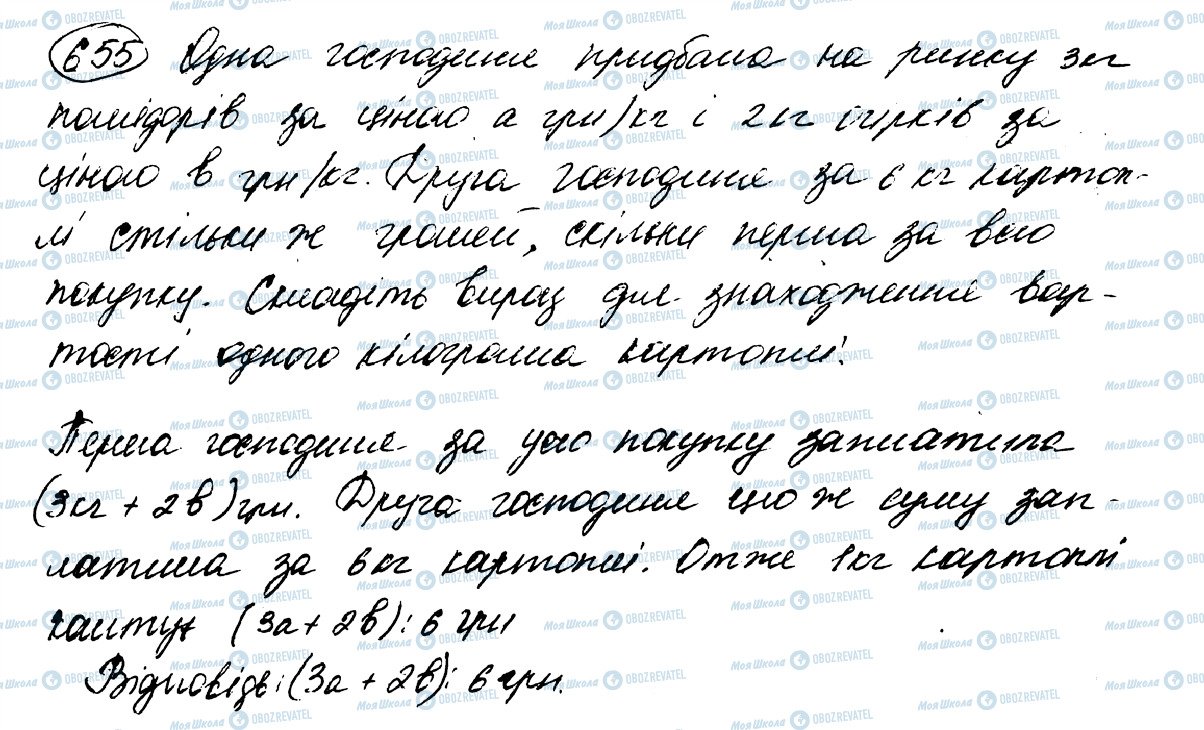 655 Одна господиня придбала на ринку 3кг
помідорів за ціною а грн/кг і 2 кг огірків за
ціною в грн/кг. Друга господиня за 6 кг картоп-
лі стільки ж грошей, скільки перша за всю
покупку. Складіть вираз для знаходження вар-
тості одного кілограма картоплі.
Перша господиня за усю покупку заплатила
(3кг + 2в) грн. Друга господиня цю ж суму зап-
латила за 6кг картоплі. Отже 1кг картоплі
коштує (3а + 2в) : 6 грн
Відповідь: (3а + 2в) : 6 грн.